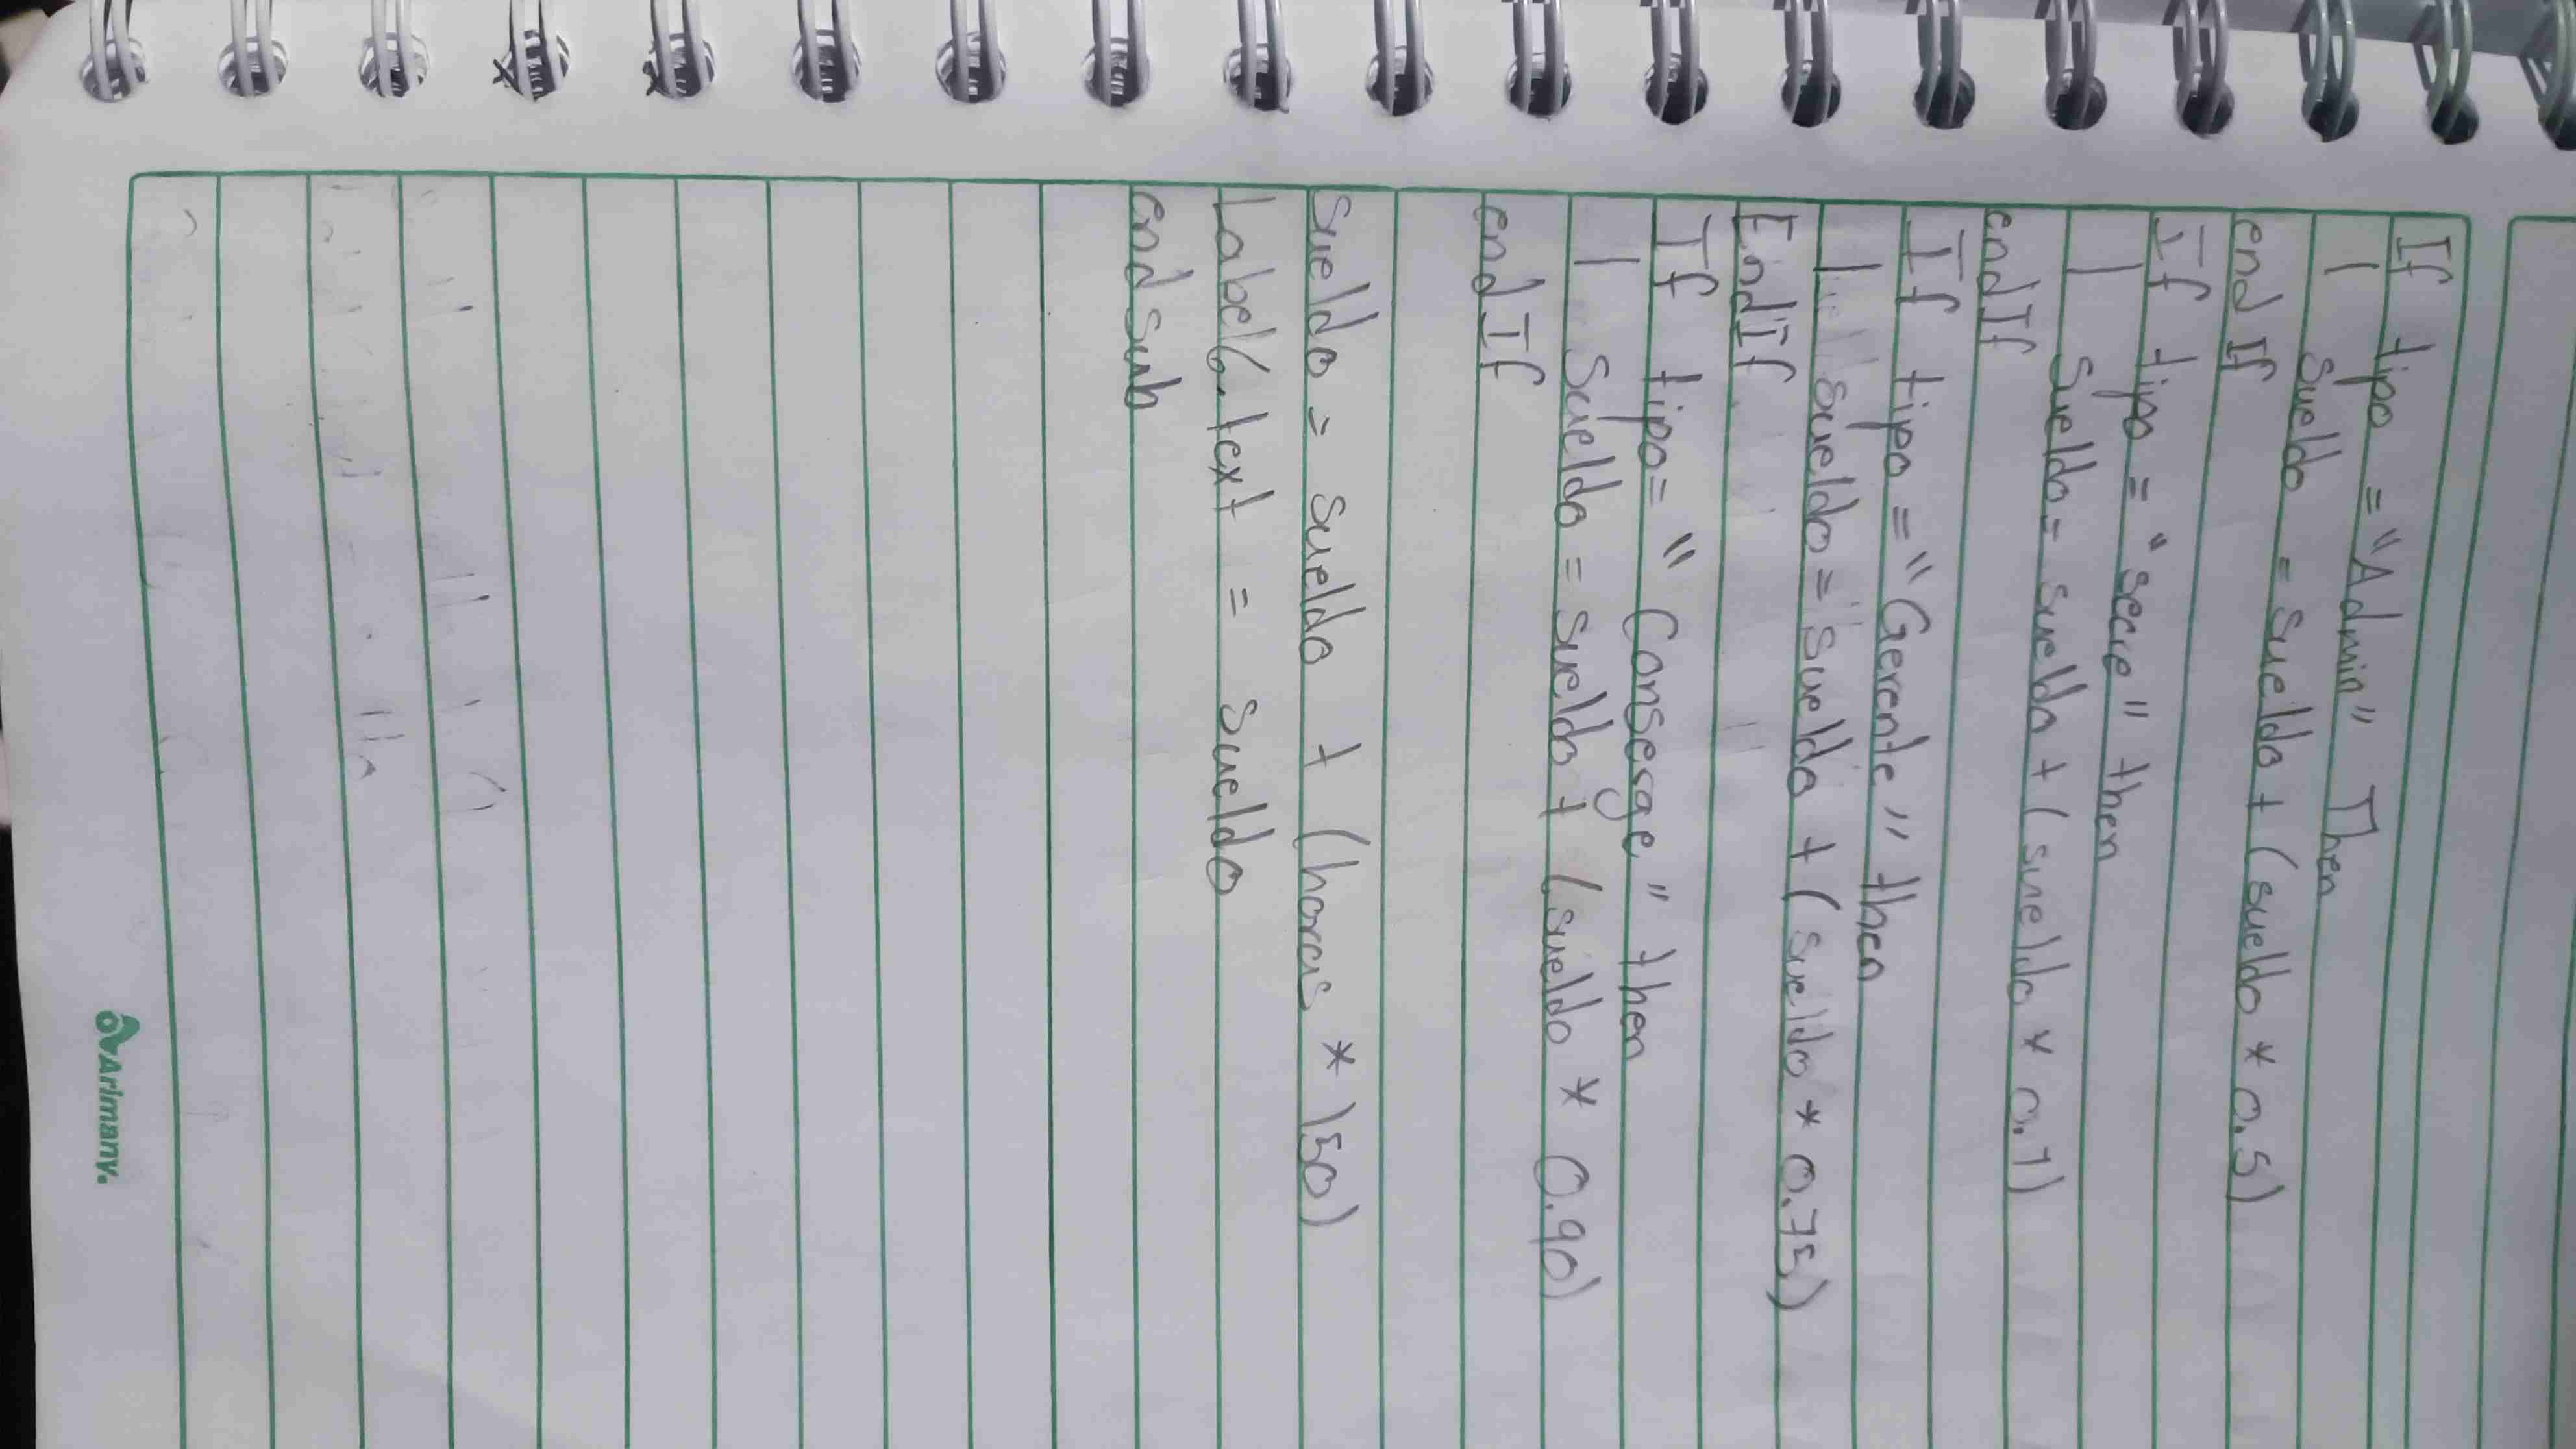 If tipo = "Admin" Then
sueldo = sueldo + (sueldo * 0.5)
end If
If tipo = "secre" then
Sueldo = sueldo + (sueldo * 0.7)
endIf
If tipo = "Gerente" then
sueldo = sueldo + (sueldo * 0.75)
EndIf
If tipo = "Conserge" then
Sueldo = sueldo + (sueldo * 0.90)
endIf
Sueldo = sueldo + (horas * 150)
Label6.text = sueldo
end Sub
Arimany.